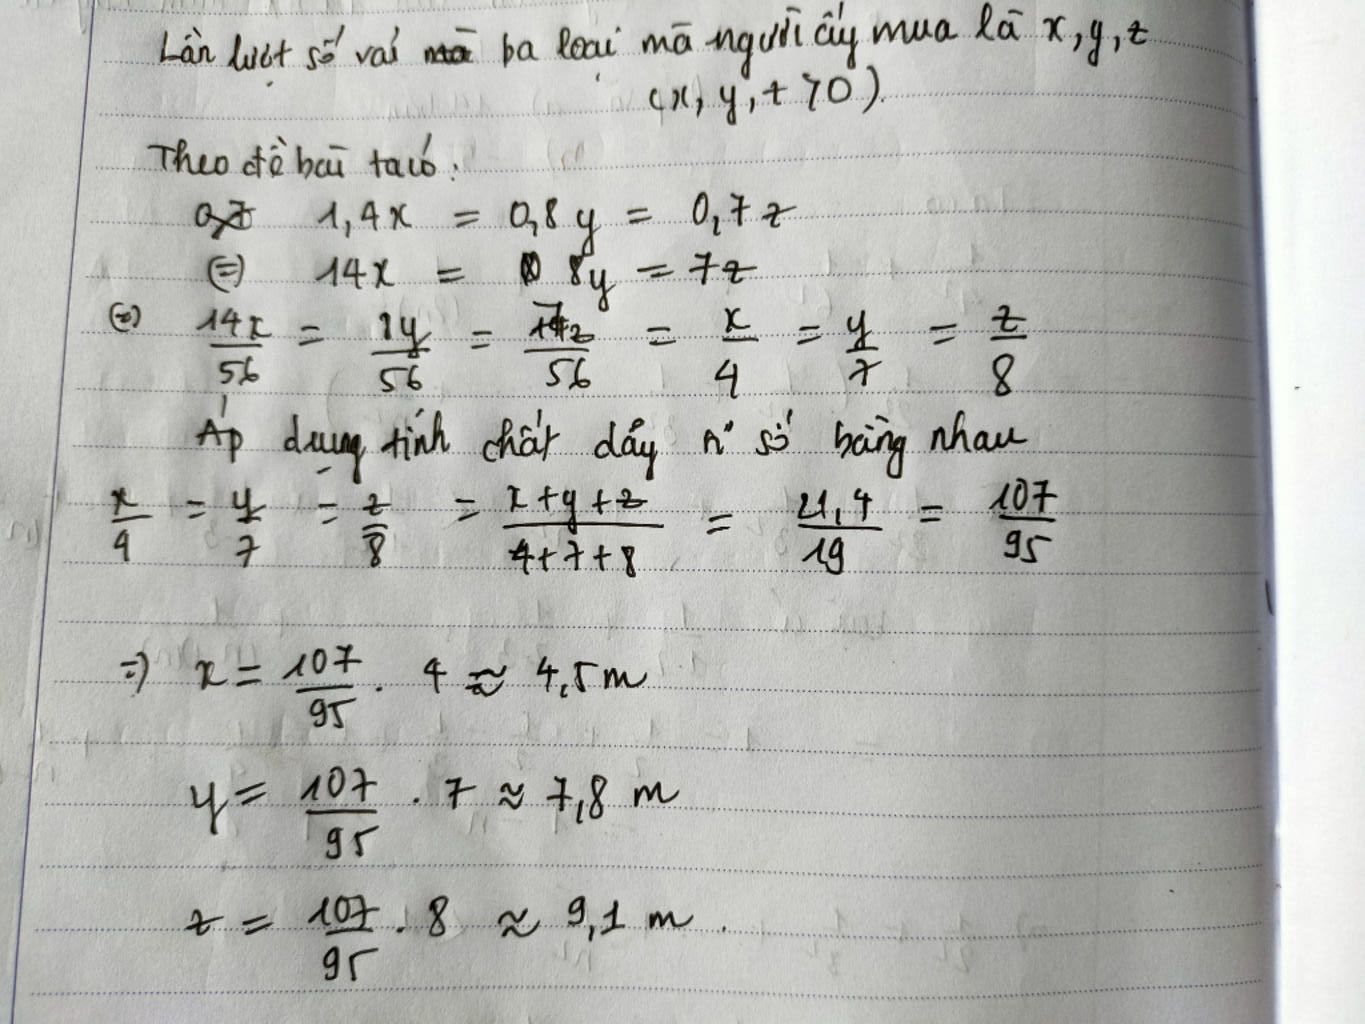 Lần lượt số vải ba loại mà người ấy mua là x, y, z
(x, y, z > 0).
Theo đề bài ta có:
1,4x = 0,8y = 0,7z
(=) 14x = 8y = 7z
(=) 14x/56 = 8y/56 = 7z/56 = x/4 = y/7 = z/8
Áp dụng tính chất dãy tỉ số bằng nhau
x/4 = y/7 = z/8 = x+y+z/4+7+8 = 21,4/19 = 107/95
=) x = 107/95 . 4 ≈ 4,5 m
y = 107/95 . 7 ≈ 7,8 m
z = 107/95 . 8 ≈ 9,1 m .